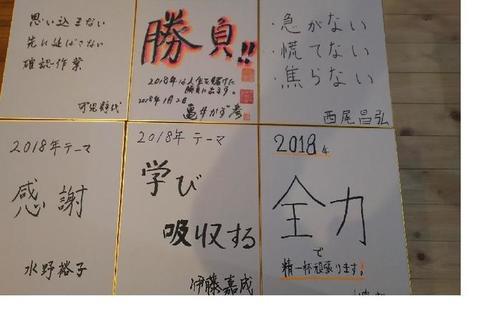 思い込まない
先に延ばさない
確認作業
勝負!!
2018年は人生を懸けた
勝負に出ます。
2018年1月2日
・急がない
・慌てない
・焦らない
西尾昌弘
2018年テーマ
感謝
水野裕子
2018年テーマ
学び
吸収する
伊藤嘉成
2018年
全力
で
精一杯頑張ります!